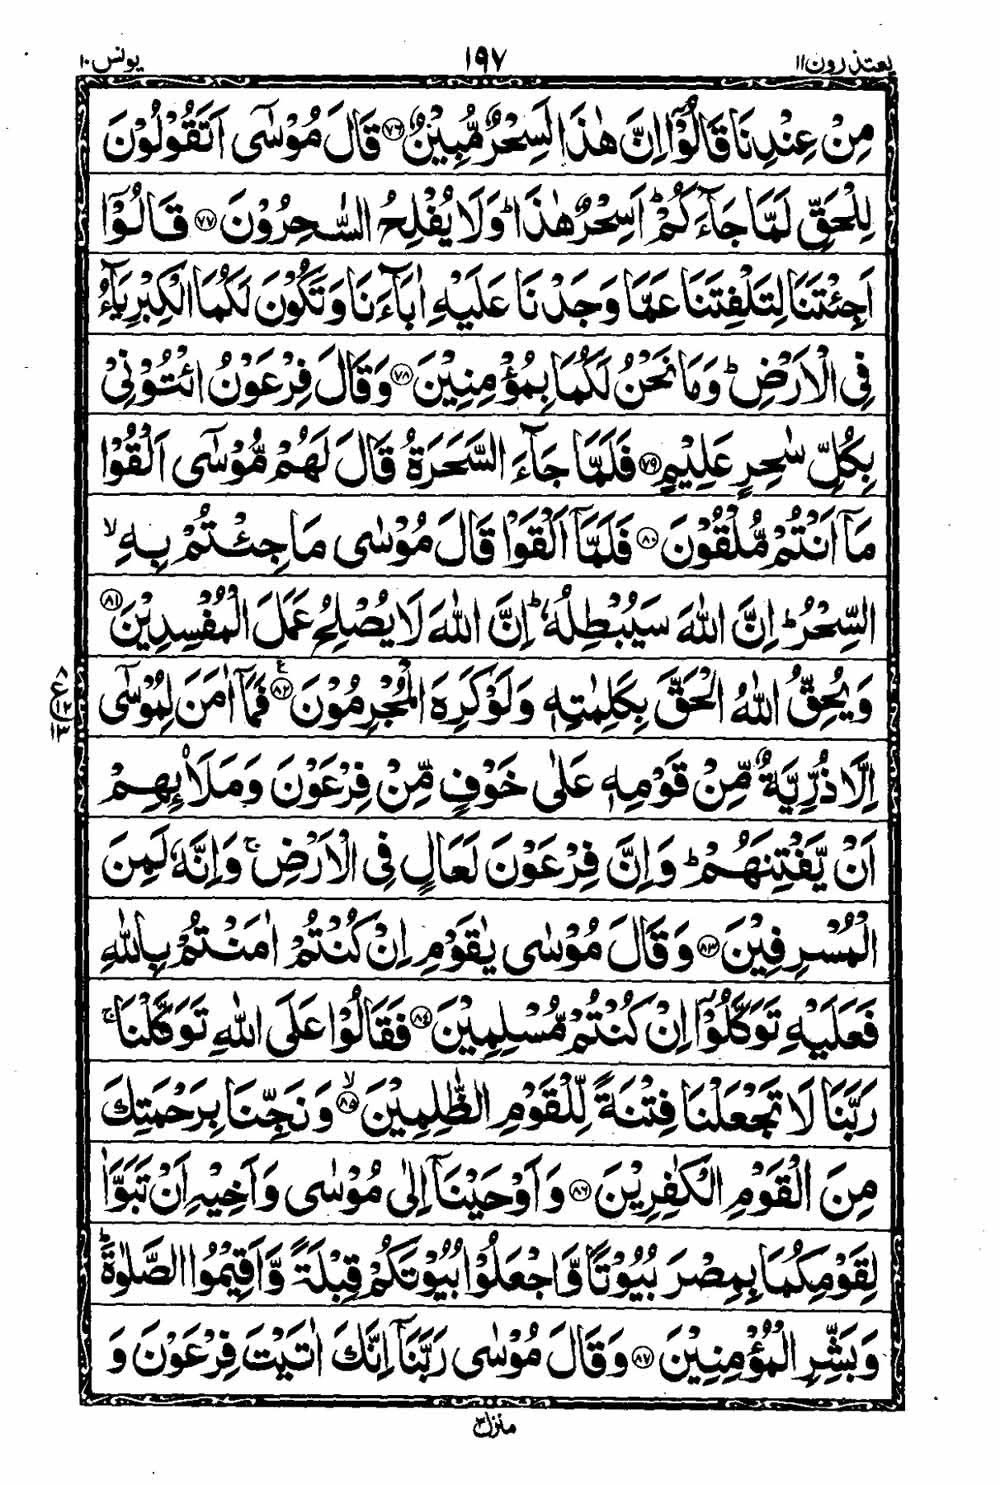 يعتذرون ١١ ١٩٧ يونس ١٠
مِنْ عِنْدِنَا قَالُوْۤا اِنَّ هٰذَا لَسِحْرٌ مُّبِيْنٌ ﴿٧٦﴾ قَالَ مُوْسٰۤى اَتَقُوْلُوْنَ
لِلْحَقِّ لَمَّا جَآءَكُمْ ؕ اَسِحْرٌ هٰذَا ؕ وَلَا يُفْلِحُ السّٰحِرُوْنَ ﴿٧٧﴾ قَالُوْۤا
اَجِئْتَنَا لِتَلْفِتَنَا عَمَّا وَجَدْنَا عَلَيْهِ اٰبَآءَنَا وَتَكُوْنَ لَكُمَا الْكِبْرِيَآءُ
فِي الْاَرْضِ ؕ وَمَا نَحْنُ لَكُمَا بِمُؤْمِنِيْنَ ﴿٧٨﴾ وَقَالَ فِرْعَوْنُ ائْتُوْنِيْ
بِكُلِّ سٰحِرٍ عَلِيْمٍ ﴿٧٩﴾ فَلَمَّا جَآءَ السَّحَرَةُ قَالَ لَهُمْ مُّوْسٰۤى اَلْقُوْا
مَاۤ اَنْتُمْ مُّلْقُوْنَ ﴿٨٠﴾ فَلَمَّاۤ اَلْقَوْا قَالَ مُوْسٰى مَا جِئْتُمْ بِهِ ۙ
السِّحْرُ ؕ اِنَّ اللّٰهَ سَيُبْطِلُهٗ ؕ اِنَّ اللّٰهَ لَا يُصْلِحُ عَمَلَ الْمُفْسِدِيْنَ ﴿٨١﴾
وَيُحِقُّ اللّٰهُ الْحَقَّ بِكَلِمٰتِهٖ وَلَوْ كَرِهَ الْمُجْرِمُوْنَ ﴿٨٢﴾ ع فَمَاۤ اٰمَنَ لِمُوْسٰۤى
٨ ع ١٢ ١٣
اِلَّا ذُرِّيَّةٌ مِّنْ قَوْمِهٖ عَلٰى خَوْفٍ مِّنْ فِرْعَوْنَ وَمَلَا۟ئِهِمْ
اَنْ يَّفْتِنَهُمْ ؕ وَاِنَّ فِرْعَوْنَ لَعَالٍ فِي الْاَرْضِ ۚ وَاِنَّهٗ لَمِنَ
الْمُسْرِفِيْنَ ﴿٨٣﴾ وَقَالَ مُوْسٰى يٰقَوْمِ اِنْ كُنْتُمْ اٰمَنْتُمْ بِاللّٰهِ
فَعَلَيْهِ تَوَكَّلُوْۤا اِنْ كُنْتُمْ مُّسْلِمِيْنَ ﴿٨٤﴾ فَقَالُوْا عَلَى اللّٰهِ تَوَكَّلْنَا ۚ
رَبَّنَا لَا تَجْعَلْنَا فِتْنَةً لِّلْقَوْمِ الظّٰلِمِيْنَ ۙ ﴿٨٥﴾ وَنَجِّنَا بِرَحْمَتِكَ
مِنَ الْقَوْمِ الْكٰفِرِيْنَ ﴿٨٦﴾ وَاَوْحَيْنَاۤ اِلٰى مُوْسٰى وَاَخِيْهِ اَنْ تَبَوَّاٰ
لِقَوْمِكُمَا بِمِصْرَ بُيُوْتًا وَّاجْعَلُوْا بُيُوْتَكُمْ قِبْلَةً وَّاَقِيْمُوا الصَّلٰوةَ ؕ
وَبَشِّرِ الْمُؤْمِنِيْنَ ﴿٨٧﴾ وَقَالَ مُوْسٰى رَبَّنَاۤ اِنَّكَ اٰتَيْتَ فِرْعَوْنَ وَ
منزل ٣